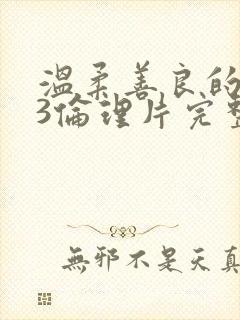 溫柔善良的
3倫理片完整
無邪不是天真